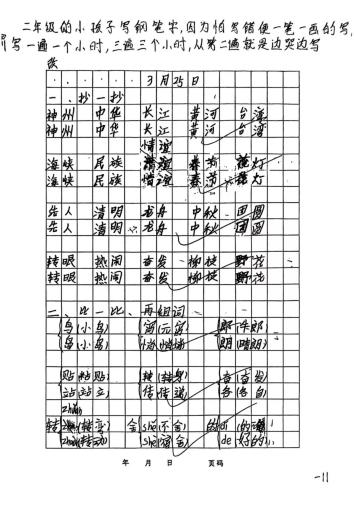 二年级的小孩子写钢笔字,因为怕写错便一笔一画的写,
写一遍一个小时,三遍三个小时,从第二遍就是边哭边写
3月25日
一、抄一抄
神州 中华 长江 黄河 台湾
神州 中华 长江 黄河 台湾
情谊
海峡 民族 奏节 花灯
海峡 民族 情谊 奏节 花灯
告人 清明 龙舟 中秋 团圆
告人 清明 龙舟 中秋 团圆
转眼 热闹 奋发 柳枝 野花
转眼 热闹 奋发 柳枝 野花
二、比一比、再组词
鸟(小鸟) 郎(牛郎)
岛(小岛) 朗(晴朗)
贴(粘贴) 转(转身) 奋(奋发)
站(站立) 传(传说) 各(各自)
zhuǎn
转 (转变) 舍 shě(不舍) 的 dí(的确)
(转动) shè(宿舍) de(好的)
年 月 日 页码
-11